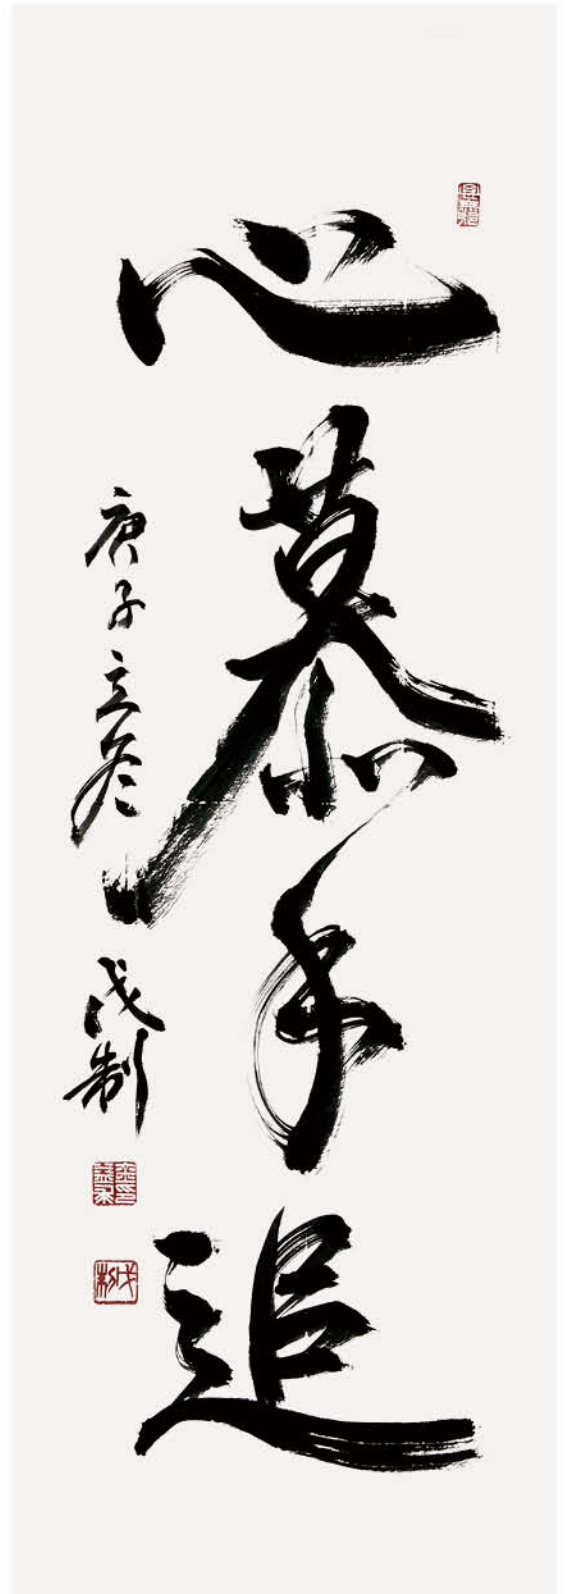 心慕手追
庚子立冬
戊制